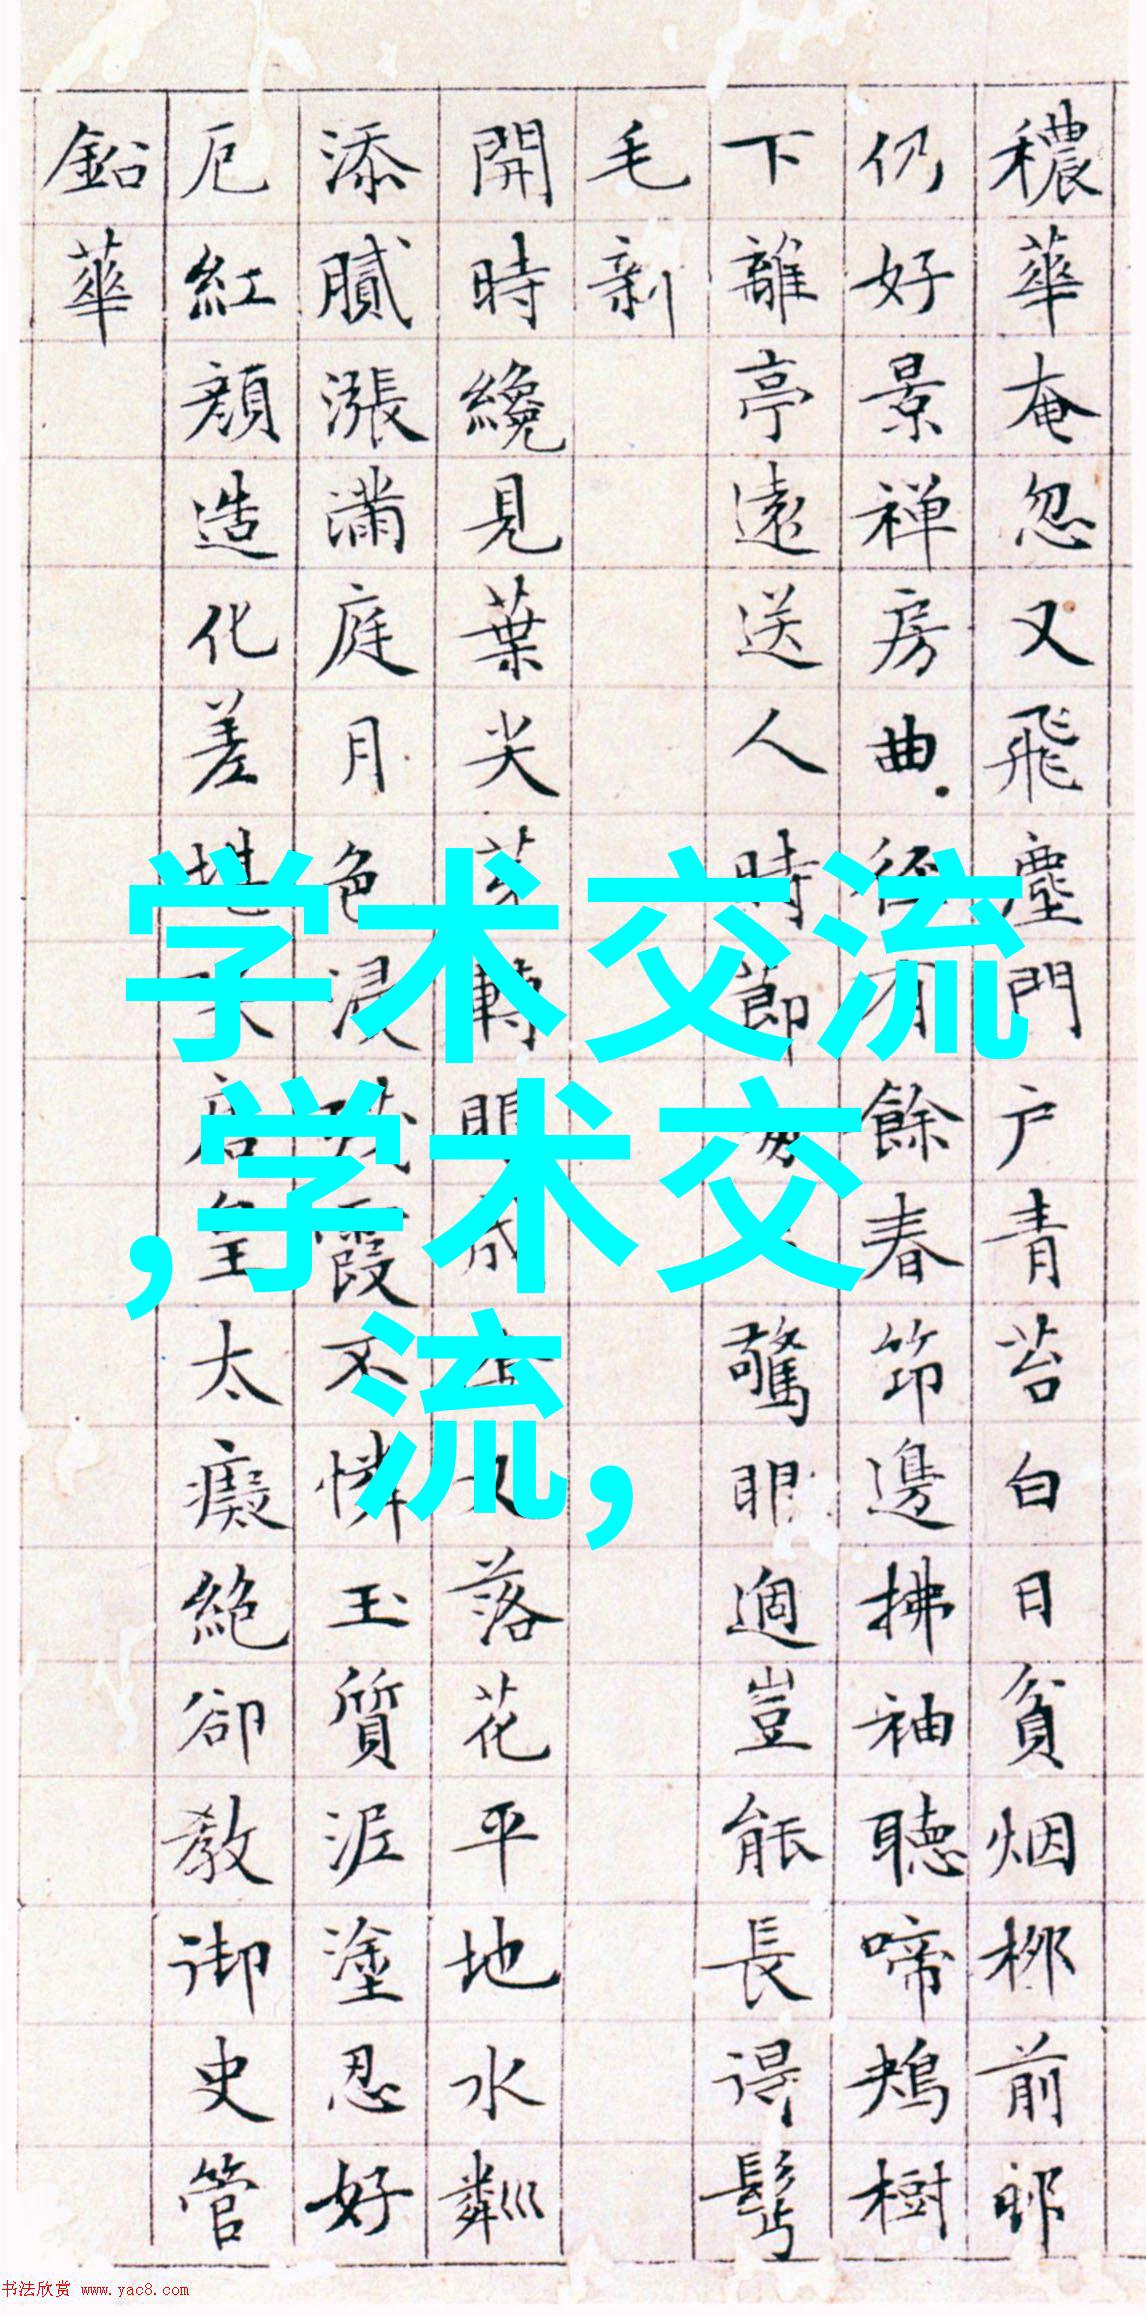 穠華奄忽又飛塵門户青苔白日貧烟桞前郎
仍好景禅房曲径有餘春笻邊拂袖聴啼鴂樹
下離亭遠送人時節驚眼過豈能長得鬂
毛新
開時纔見葉尖芽轉落花平地水粼巛
添膩漲滿庭月色浸残霞不憐玉質泥塗忍好
卮紅顔造化差地太癡絶卻教御史管
鉛華
学术交流
,学术交
流,
书法欣赏 www.yac8.com